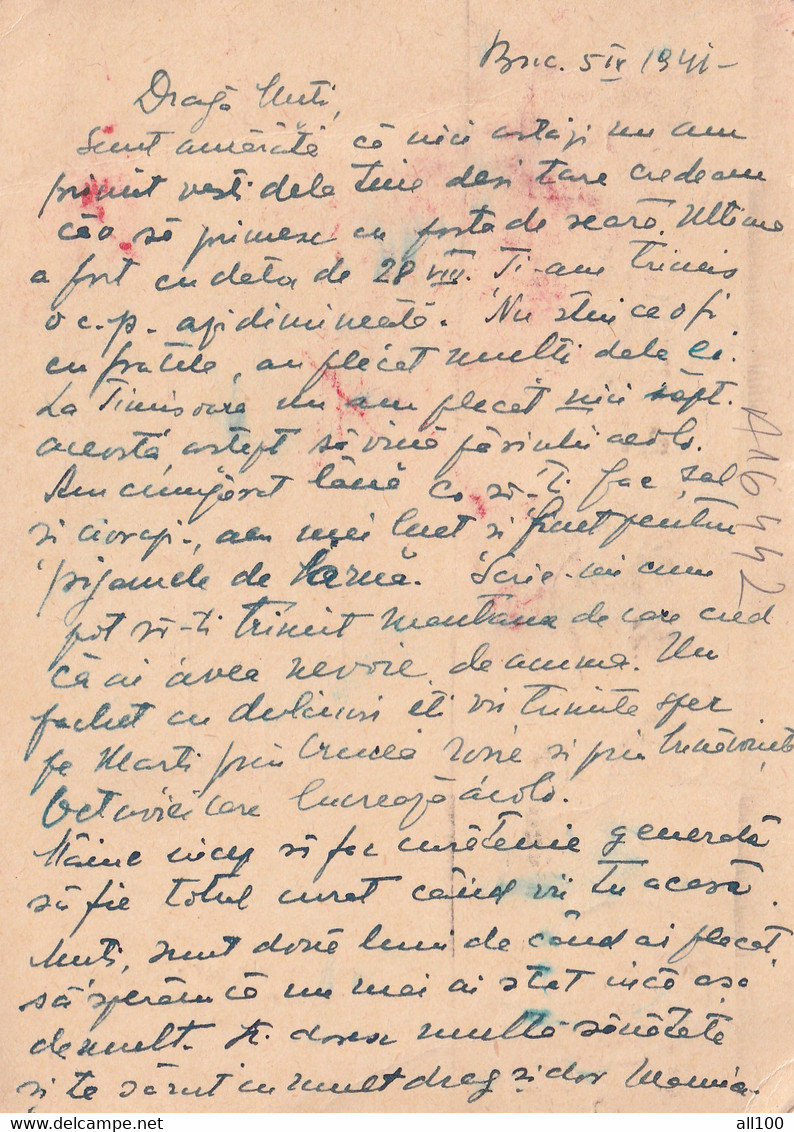 Buc. 5 IX 1941-
Dragă Nuti,
Sunt amărâtă că nici astăzi nu am
primit vesti dela tine desi tare credeam
căo să primesc cu posta de seară. Ultima
a fost cu data de 28 VIII. Ti-am trimis
o c.p. azi dimineată. Nu stiu ce o fi
cu fratele, au plecat multi dela ei.
La Timisoara nu am plecat nici săpt.
aceasta, astept să vină părintii acolo.
Am cumpărat lână ca să-ti fac sal
si ciorapi, am mai luat si finet pentru
pijamele de iarnă. Scrie-mi cum
pot să-ti trimit mantaua de care cred
că ai avea nevoie de acuma. Un
pachet cu dulciuri iti voi trimite sper
pe Marti prin Crucea rosie si prin
care lucrează acolo.
Mâine incep să fac curătenie generală
să fie totul curat când vii tu acasă.
Nuti, sunt două luni de când ai plecat,
să sperăm că nu mai ai stat incă asa
demult. Iti doresc multă sănătate
si te sărut cu mult drag si dor
A16442
all100